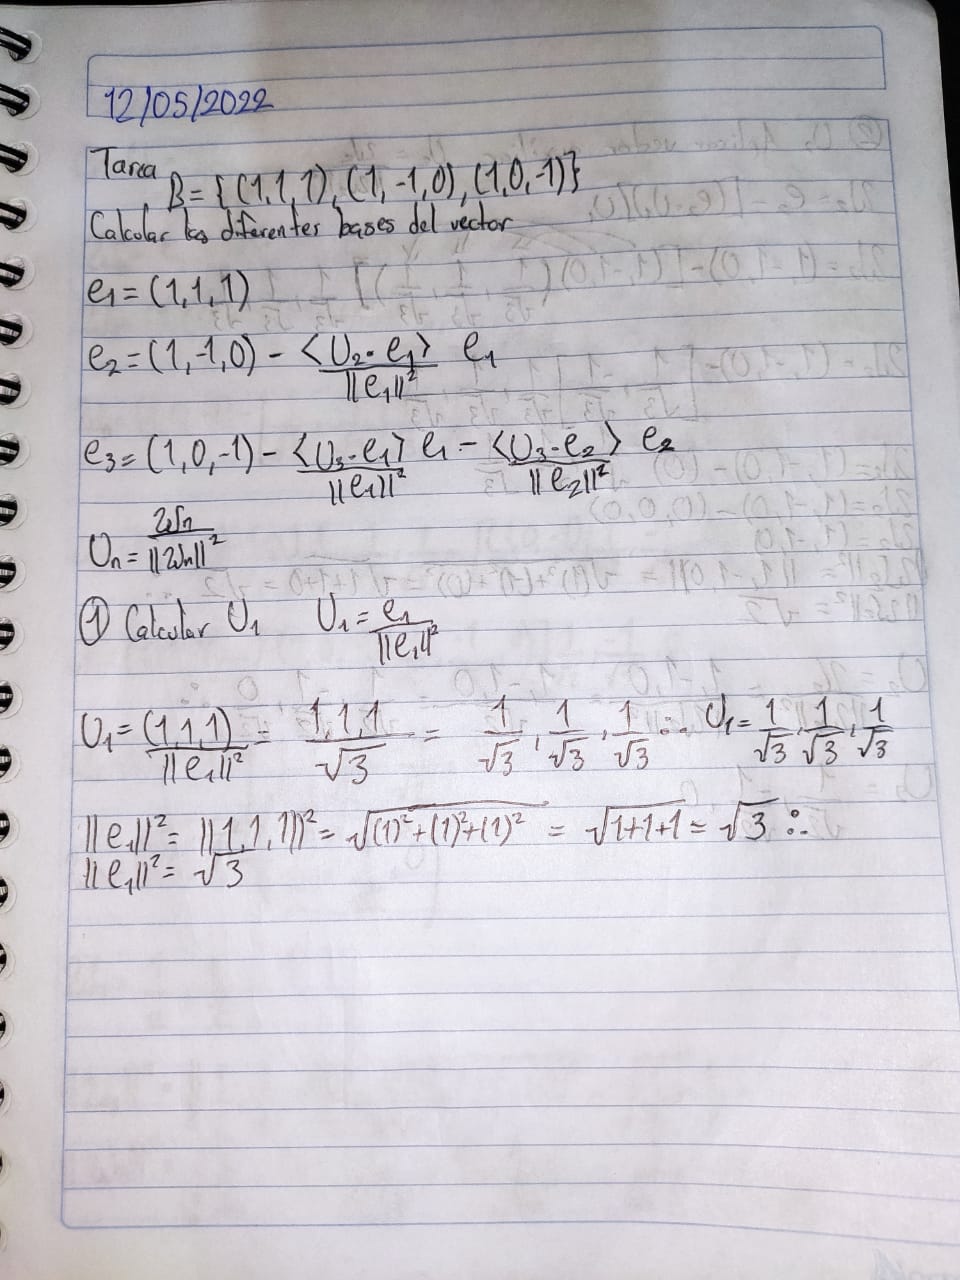 12/05/2022
Tarea
B = { (1,1,1), (1,-1,0), (1,0,-1)}
Calcular las diferentes bases del vector
e₁ = (1,1,1)
e₂ = (1,-1,0) - <U₂·e₁>/||e₁||² e₁
e₃ = (1,0,-1) - <U₃·e₁>/||e₁||² e₁ - <U₃·e₂>/||e₂||² e₂
Uₙ = 2Wn/||2Wn||²
① Calcular U₁ U₁ = e₁/||e₁||²
U₁ = (1,1,1)/||e₁||² = 1,1,1/√3 = 1/√3, 1/√3, 1/√3 ∴ U₁ = 1/√3, 1/√3, 1/√3
||e₁||² = ||1,1,1||² = √(1)²+(1)²+(1)² = √1+1+1 = √3 ∴
||e₁||² = √3